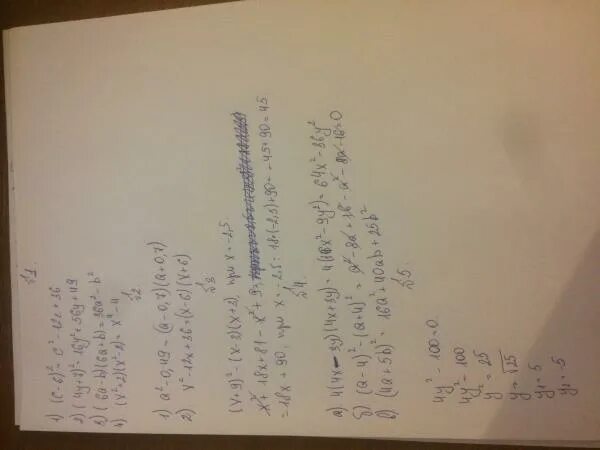 №1.
1) (c-6)² = c² - 12c + 36
2) (4y+7)² = 16y² + 56y + 49
3) (6a-b)(6a+b) = 36a² - b²
4) (x²+2)(x²-2) = x⁴ - 4
№2
1) a² - 0,49 = (a-0,7)(a+0,7)
2) x² - 12x + 36 = (x-6)(x+6)
№3
(x+9)² - (x-3)(x+3), при x = -2,5.
x² + 18x + 81 - x² + 9
= 18x + 90; при x = -2,5: 18·(-2,5) + 90 = -45 + 90 = 45
№4.
а) 4(4x-3y)(4x+3y) = 4(16x² - 9y²) = 64x² - 36y²
б) (a-4)² - (a+4)² = a² - 8a + 16 - a² - 8a - 16 = 0
в) (4a+5b)² = 16a² + 40ab + 25b²
№5.
4y² - 100 = 0.
4y² = 100
y² = 25
y = √25
y₁ = 5
y₂ = -5